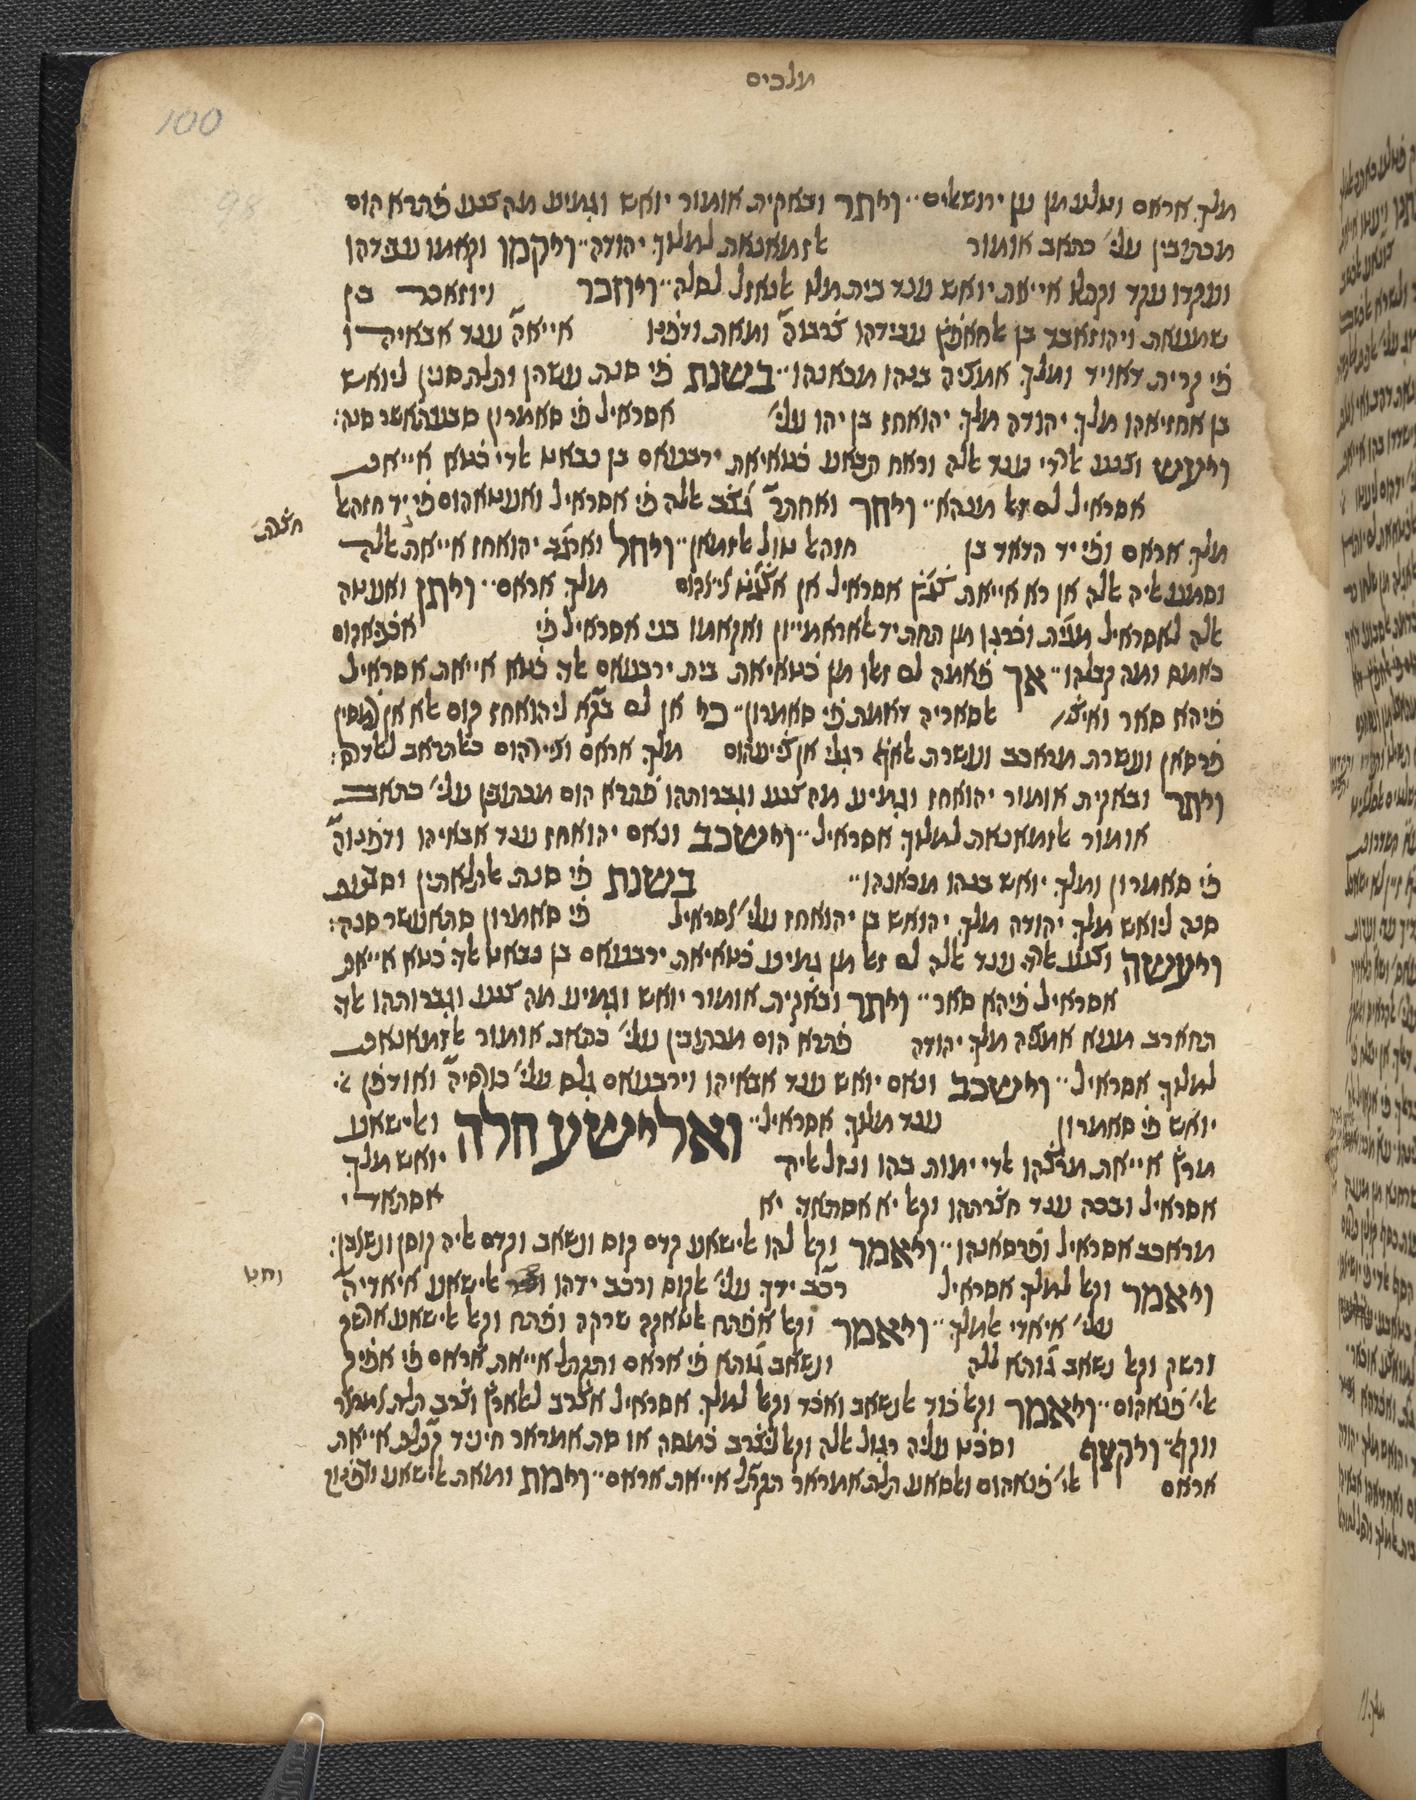 מלכים
100
98
מלך אראם וטלע מן ען ירושלים·· ויתר ובאקית אומור יואש וגמיע מה צנע פהרא הום
מכתובין עלי׳ כתאב אומור אזמאנאת למלוך יהודה·· ויקמו וקאמו עבידהו
ועקדו עקד וקתלו אייאת יואש ענד בית מלוא אנאזל לסלה·· ויוזכר ויוזאכר בן
שמעאת ויהוזאבד בן שומר עבידהו צרבוה ומאת ודפנו אייאה ענד אבאיהו
פי קרית דאויד ומלך אמציה בנהו מכאנהו·· בשנת פי סנת עשרן ותלת סנין ליואש
בן אחזיאהו מלך יהודה מלך יהואחז בן יהו עלי׳ אסראיל פי סאמרון סבעתאשר סנה:
ויעש וצנע אלדי ענד אלה וראח תבאע כטאיאת ירבעאם בן נבאט אלדי כטא אייאת
אסראיל לם זאל מנהא·· ויחר ואחתר גצב אלה פי אסראיל ואעטאהום פי יד חזהאל
מלך אראם ופי יד הדאד בן חזהאל טול אזמאן·· ויחל ואטלב יהואחז אייאת אלה
חצרה
וסמע איה אלה אן רא אייאת צגט אסראיל אן אצגט להום מלך אראם·· ויתן ואעטה
אלה לאסראיל מגית וכרגו מן תחת יד אלאראמייין ואקאמו בני אסראיל פי אכבאהום
כאמס ומה קבלהו·· אך פאמה לם זאלו מן כטאיאת בית ירבעאם אלדי כטא אייאת אסראיל
פיהא סאר ואיצ׳ אסאריה דאמת פי סאמרון·· כי אן לם בקא ליהואחז קום אלא אן כמסין
פרסאן ועשרת מראכב ועשרת אלאף רגלי אן ציעהום מלך אראם וצירהום כאתראב לאדרס:
ויתר ובאקית אומור יהואחז וגמיע מה צנע וגברותהו פהרא הום מכתובין עלי׳ כתאב
אומור אזמאנאת למלוך אסראיל·· וישכב ונאם יהואחז ענד אבאיהו ודפנוה
פי סאמרון ומלך יואש בנהו מכאנהו·· בשנת פי סנת אלתלאתין וסבעת
סנה ליואש מלך יהודה מלך יהואש בן יהואחז עלי׳ אסראיל פי סאמרון סתאעשר סנה:
ויעשה וצנע אלדי ענד אלה לם זאל מן גמיע כטאיאת ירבעאם בן נבאט אלדי כטא אייאת
אסראיל פיהא סאר·· ויתר ובאקית אומור יואש וגמיע מה צנע וגברותהו אלדי
תחארב מעא אמציה מלך יהודה פהרא הום מכתובין עלי׳ כתאב אומור אזמאנאת
למלוך אסראיל·· וישכב ונאם יואש ענד אבאיהו וירבעאם גלס עלי׳ כורסיה ואודפן
יואש פי סאמרון ענד מלוך אסראיל·· ואלישע חלה ואלישאע
מרץ אייאת מרצהו אלדי ימות בהו ונזל איה יואש מלך
אסראיל ובכה ענד חצרתהו וקאל יא אסתאדי יא אסתאדי
מראכב אסראיל ופרסאנהו·· ויאמר וקאל להו אלישאע קדם קוס ונשאב וקדם איה קוסן ונשאבן:
ויאמר וקאל למלך אסראיל רכב ידך עלי׳ אקוס ורכב ידהו אלישאע איאדיה
וחט
עלי׳ איאדי אמלך·· ויאמר וקאל אפתח אטאקה שרקה ופתח וקאל אלישאע ארשק
ורשק וקאל נשאב גותא ללה ונשאב גותא פי אראם ותקתל אייאת אראם פי אפיק
אלי׳ פנאהום·· ויאמר וקאל כוד אנשאב ואכד וקאל למלך אסראיל אצרב לאארץ וצרב תלת אמראר
ווקף·· ויקצף וסכט עליה רגול אלה וקאל ליצרב כמסה או סת אמראר חיניד קתלת אייאת
אראם אלי׳ פנאהום ואסאע תלת אמראר תקתל אייאת אראם·· וימת ומאת אלישאע ודפנוה